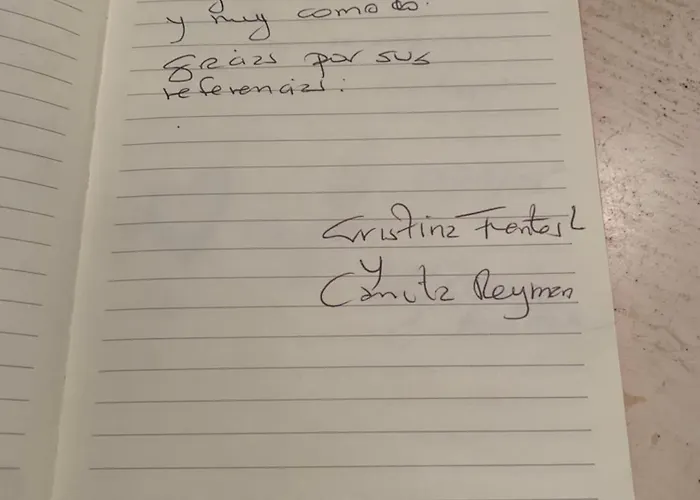 y muy comodo.
Gracias por sus
referencias.
Cristina Fentes
y
Camila Reyman